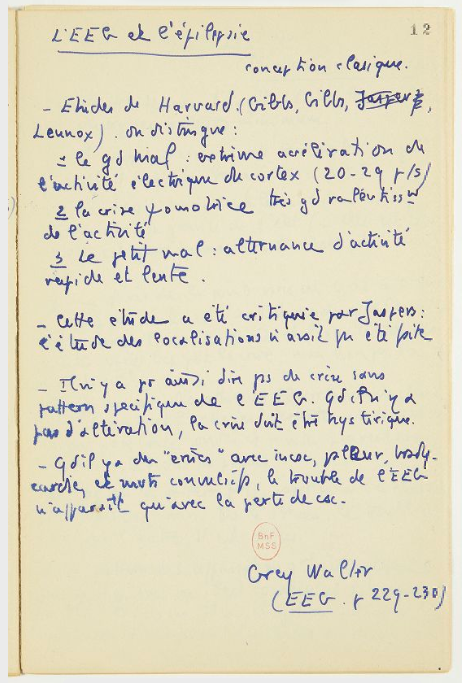 12
L'EEG et l'épilepsie
conception classique.
- Etudes de Harvard (Gibbs, Gibbs, Jasper,
Lennox). on distingue :
1 le gd mal : extrême accélération de
l'activité électrique du cortex (20-29 p/s)
2 la crise ψmotrice très gd ralentissnt
de l'activité
3 Le petit mal : alternance d'activité
rapide et lente.
- Cette étude a été critiquée par Jaspers :
l'étude des localisations n'avait pu être faite
- Il n'y a pr ainsi dire ps de crise sans
pattern spécifique de l'EEG. Qd il n'y a
pas d'altération, la crise doit être hystérique.
- Qd il y a des "crises" avec incsc, pleur, brady-
cardie, et mvts convulsifs, le trouble de l'EEG
n'apparaît qu'avec la perte de csc.
BnF
MSS
Grey Walter
(EEG. p 229-230)